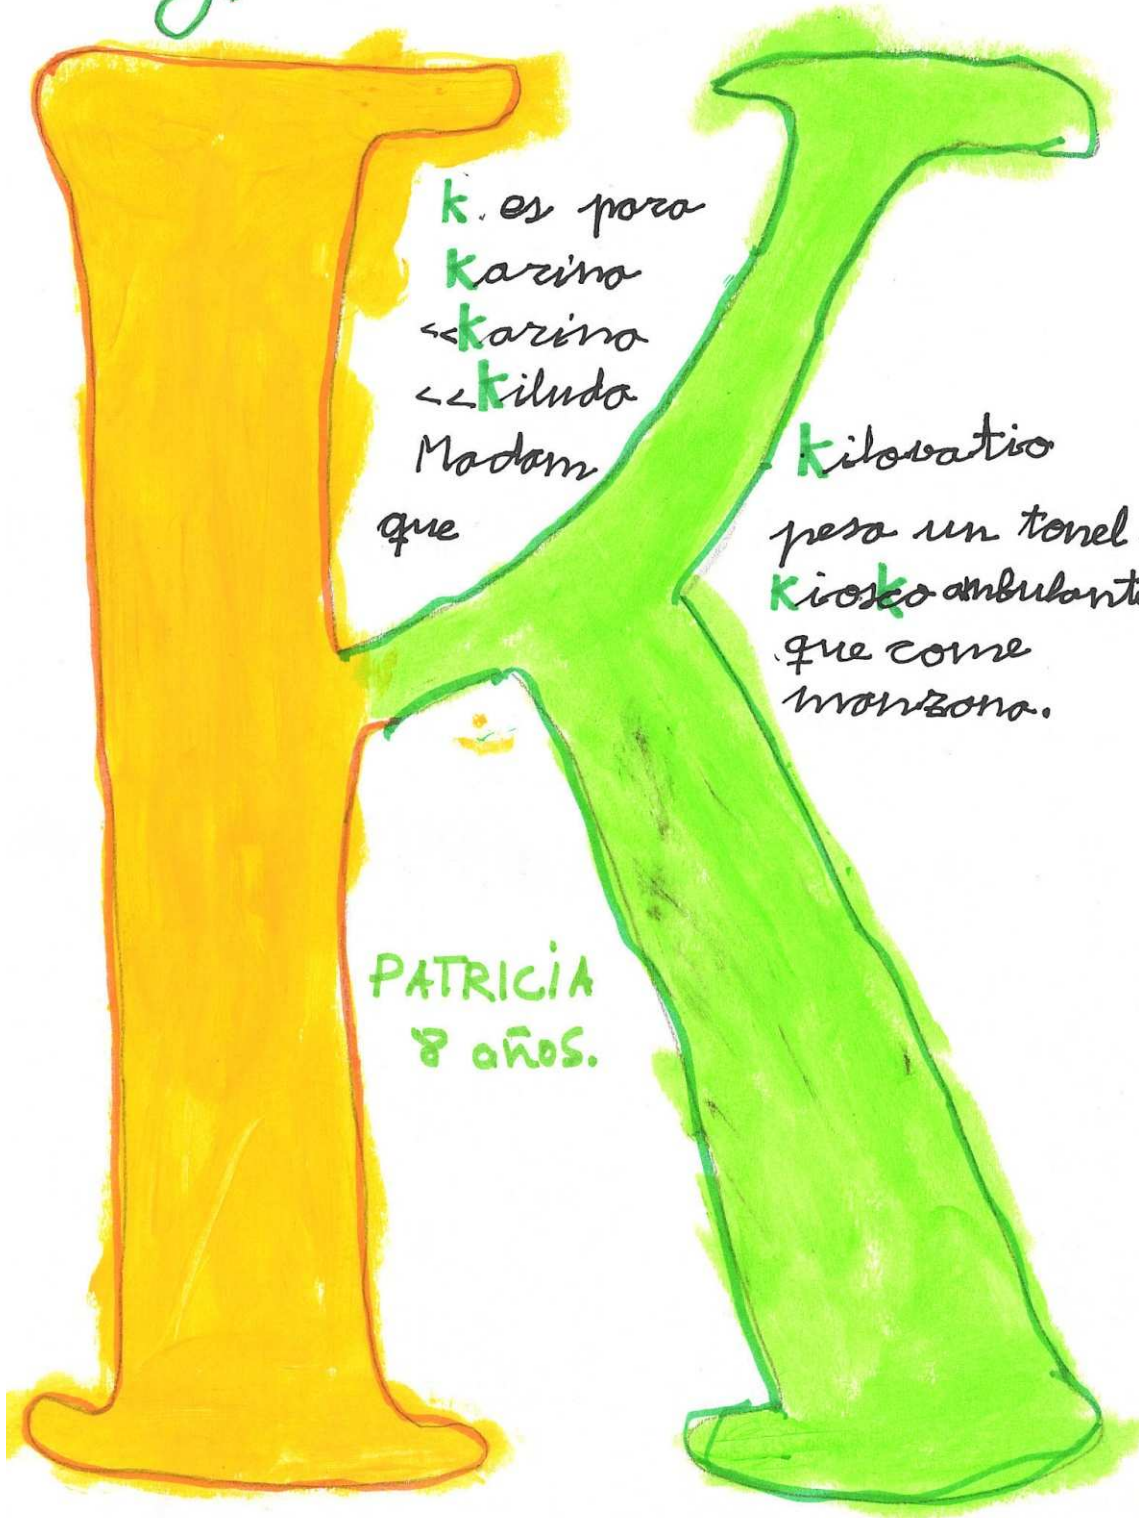 k. es para
karina
<<karina
<<kiluda
Madam
que
kilovatio
pesa un tonel
kiosko ambulant
que come
manzana.
PATRICIA
8 años.